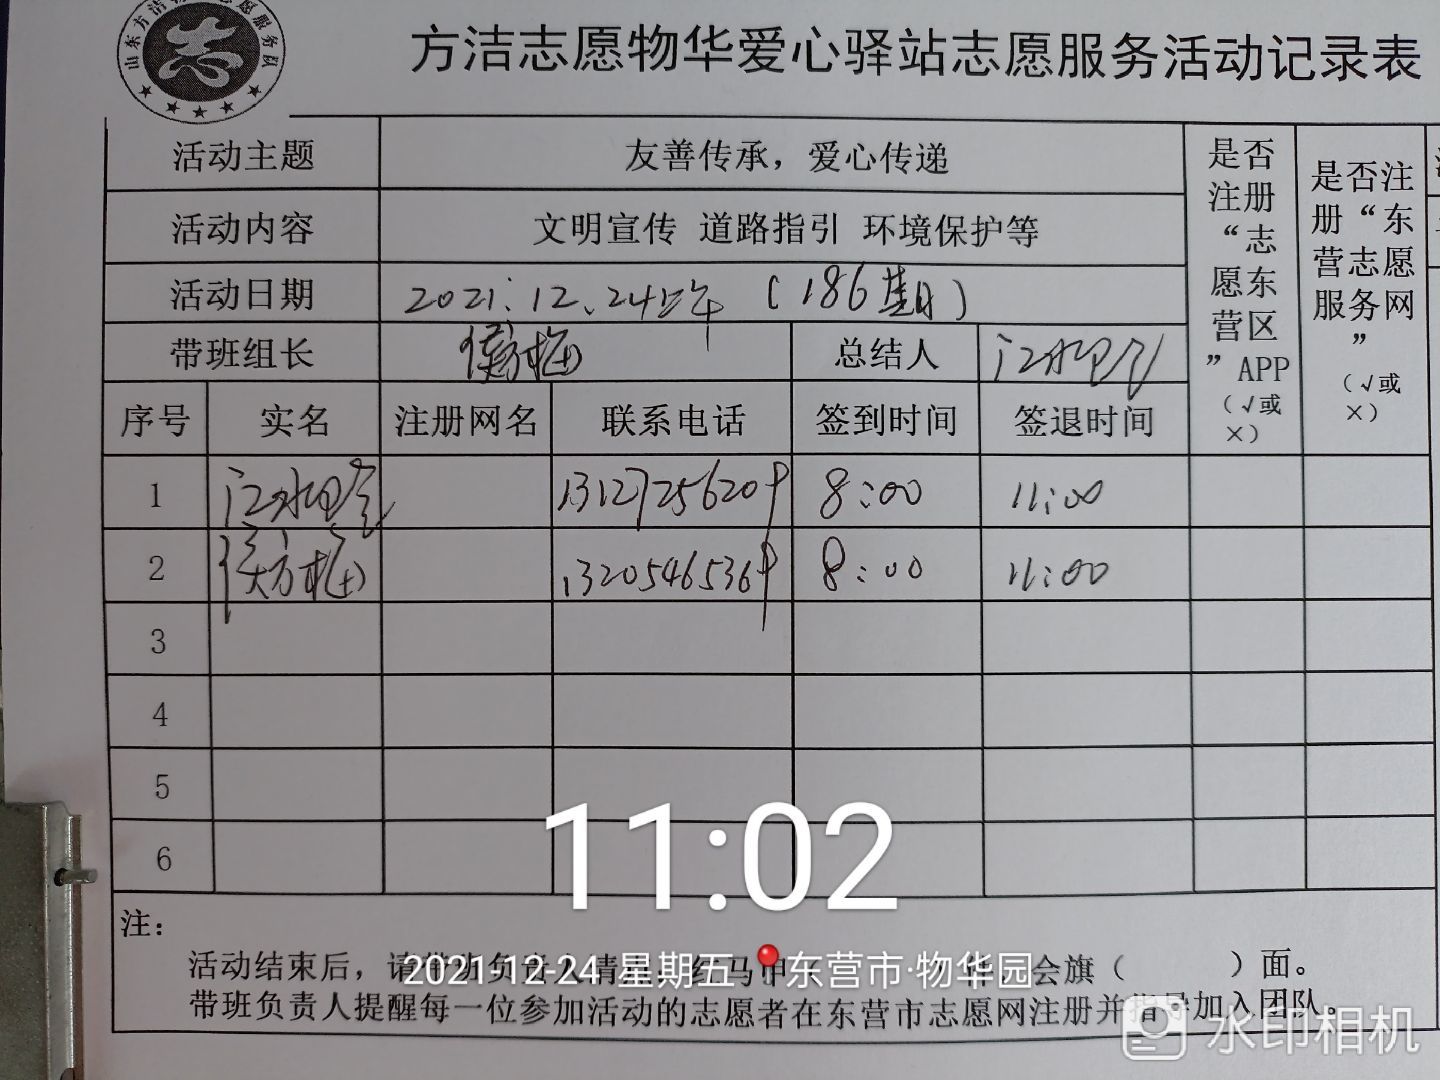 方洁志愿物华爱心驿站志愿服务活动记录表
活动主题 友善传承，爱心传递
活动内容 文明宣传 道路指引 环境保护等
活动日期 2021.12.24上午（186期）
带班组长 侯方梅 总结人
序号 实名 注册网名 联系电话 签到时间 签退时间
是否注册“志愿东营区”APP（√或×）
是否注册“东营志愿服务网”（√或×）
1 13127256209 8:00 11:00
2 侯方梅 13205465369 8:00 11:00
3
4
5
6
11:02
注：
活动结束后，请带班负责人清点，红马甲（ ）件，会旗（ ）面。
2021-12-24 星期五 东营市·物华园
带班负责人提醒每一位参加活动的志愿者在东营市志愿网注册并指导加入团队。
水印相机